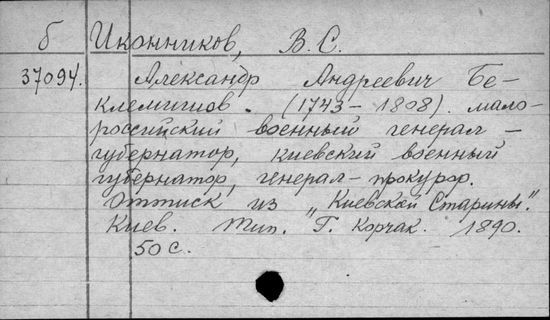 б Иконников, В. С.
37094. Александр Андреевич Бе-
клемишов. (1743 – 1808). мало-
российский военный генерал –
губернатор, киевский военный
губернатор, генерал – прокурор.
Оттиск из „Киевской Старины".
Киев. Тип. Г. Корчак. 1890.
50 с.